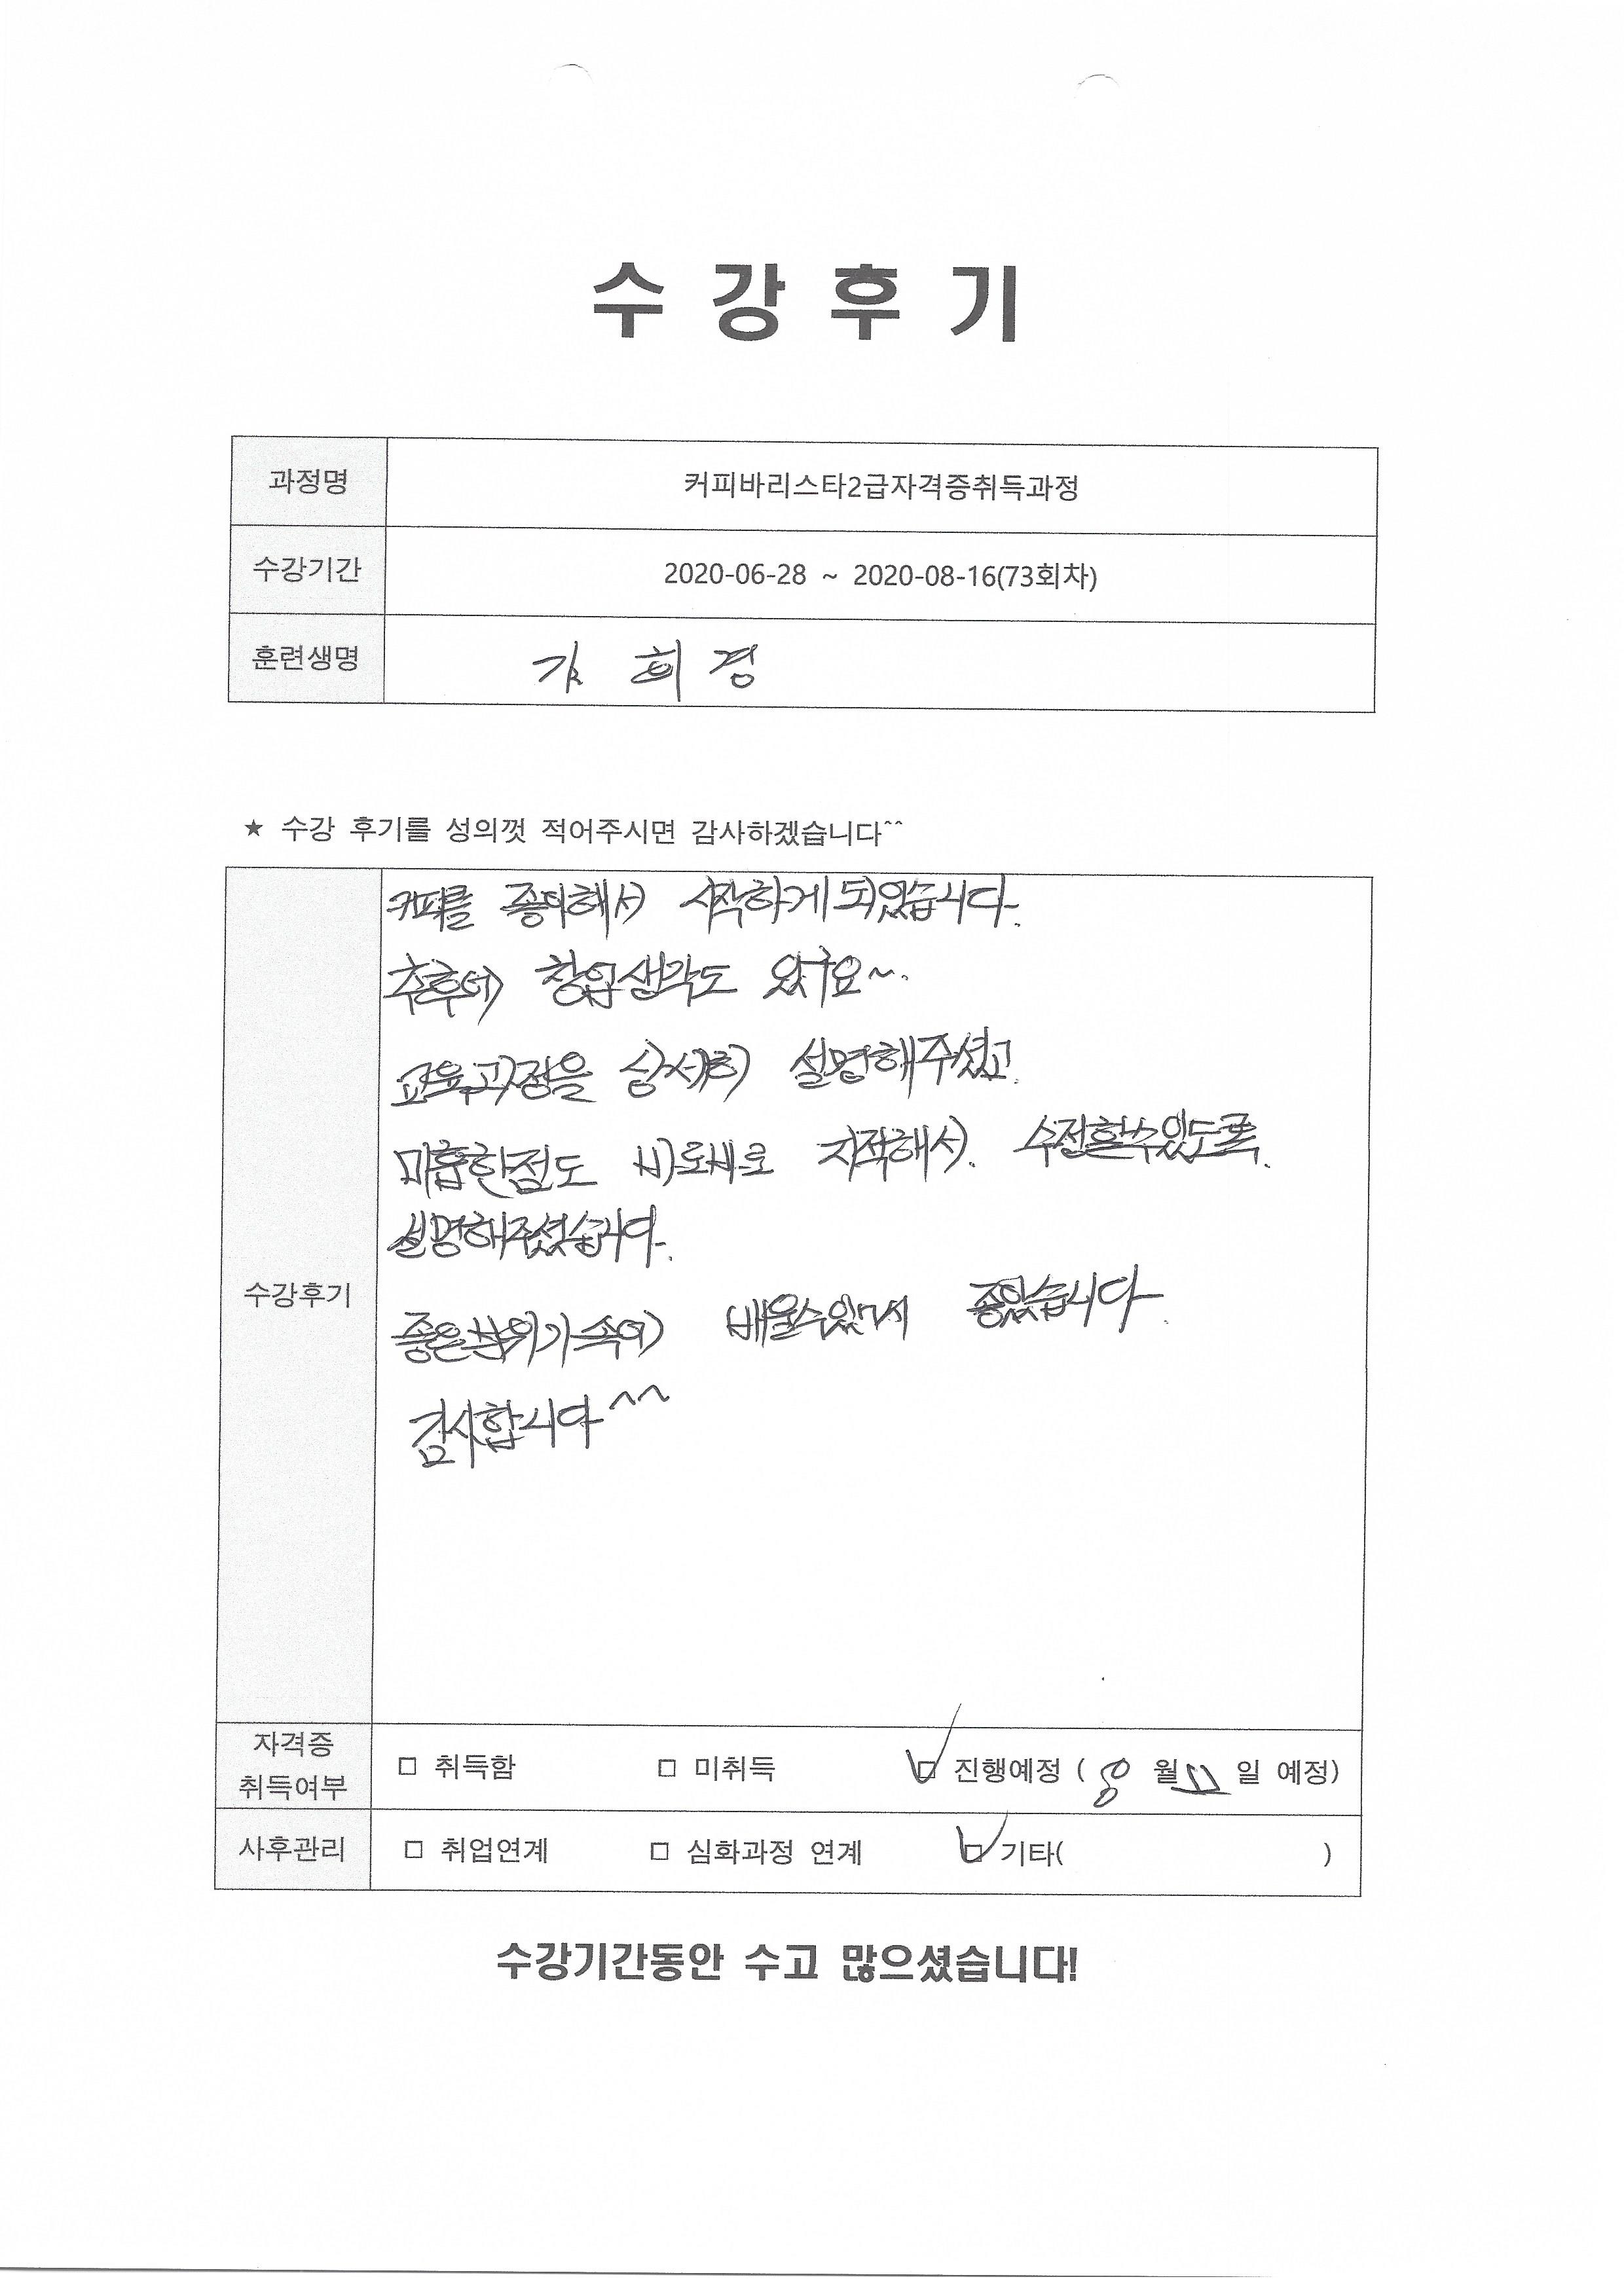 수 강 후 기
과정명 커피바리스타2급자격증취득과정
수강기간 2020-06-28 ~ 2020-08-16(73회차)
훈련생명 김 희 경
★ 수강 후기를 성의껏 적어주시면 감사하겠습니다^^
수강후기
커피를 좋아해서 시작하게 되었습니다.
추후에 창업생각도 있구요~.
교육과정을 상세히 설명해주셨고.
미흡한점도 바로바로 지적해서. 수정할수있도록.
설명해주셨습니다.
좋은분위기속에 배울수있어서 좋았습니다.
감사합니다^^
자격증 취득여부 □ 취득함 □ 미취득 ☑ 진행예정 ( 8 월 일 예정)
사후관리 □ 취업연계 □ 심화과정 연계 ☑ 기타( )
수강기간동안 수고 많으셨습니다!